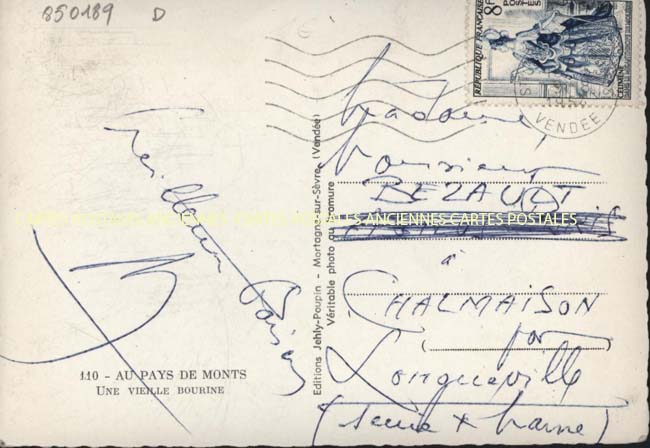 850189 D
8F
POSTES
RÉPUBLIQUE FRANÇAISE
VENDÉE
Meilleurs Baisers
Madame
Monsieur
BEZAULT
à
CHALMAISON
par
Longueville
(Seine & Marne)
CARTES POSTALES ANCIENNES CARTES POSTALES ANCIENNES CARTES POSTALES
Editions Jehly-Poupin - Mortagne-sur-Sèvre (Vendée)
Véritable photo au bromure
110 - AU PAYS DE MONTS
UNE VIEILLE BOURINE